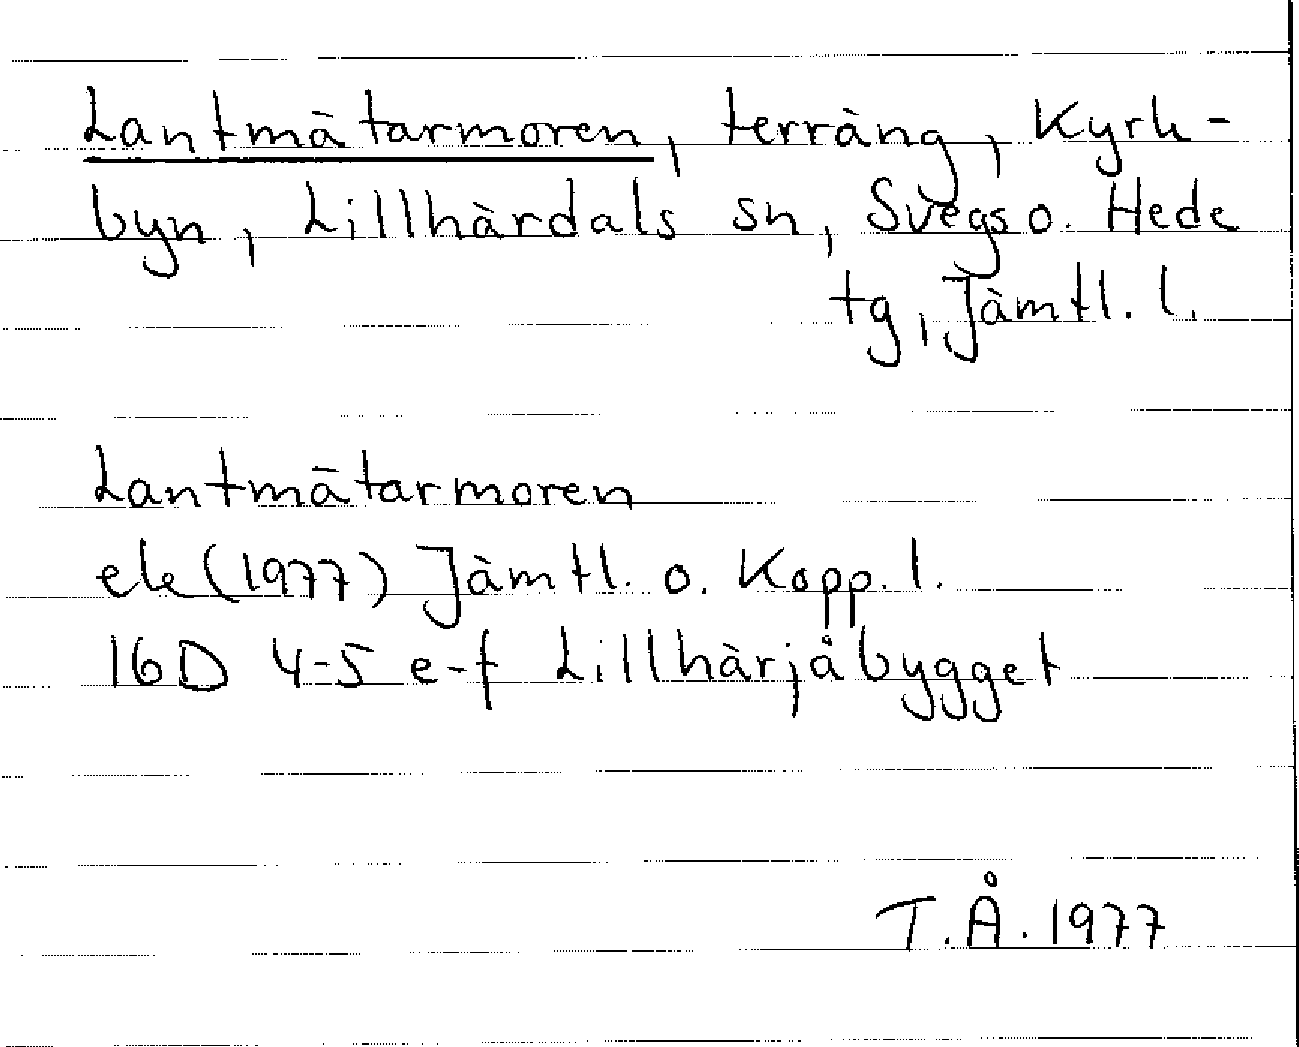 Lantmätarmoren, terräng, Kyrk-
byn, Lillhärdals sn, Svegs o. Hede
tg, Jämtl. l.
Lantmätarmoren
ek (1977) Jämtl. o. Kopp. l.
16D 4-5 e-f Lillhärjåbygget
T.Å. 1977